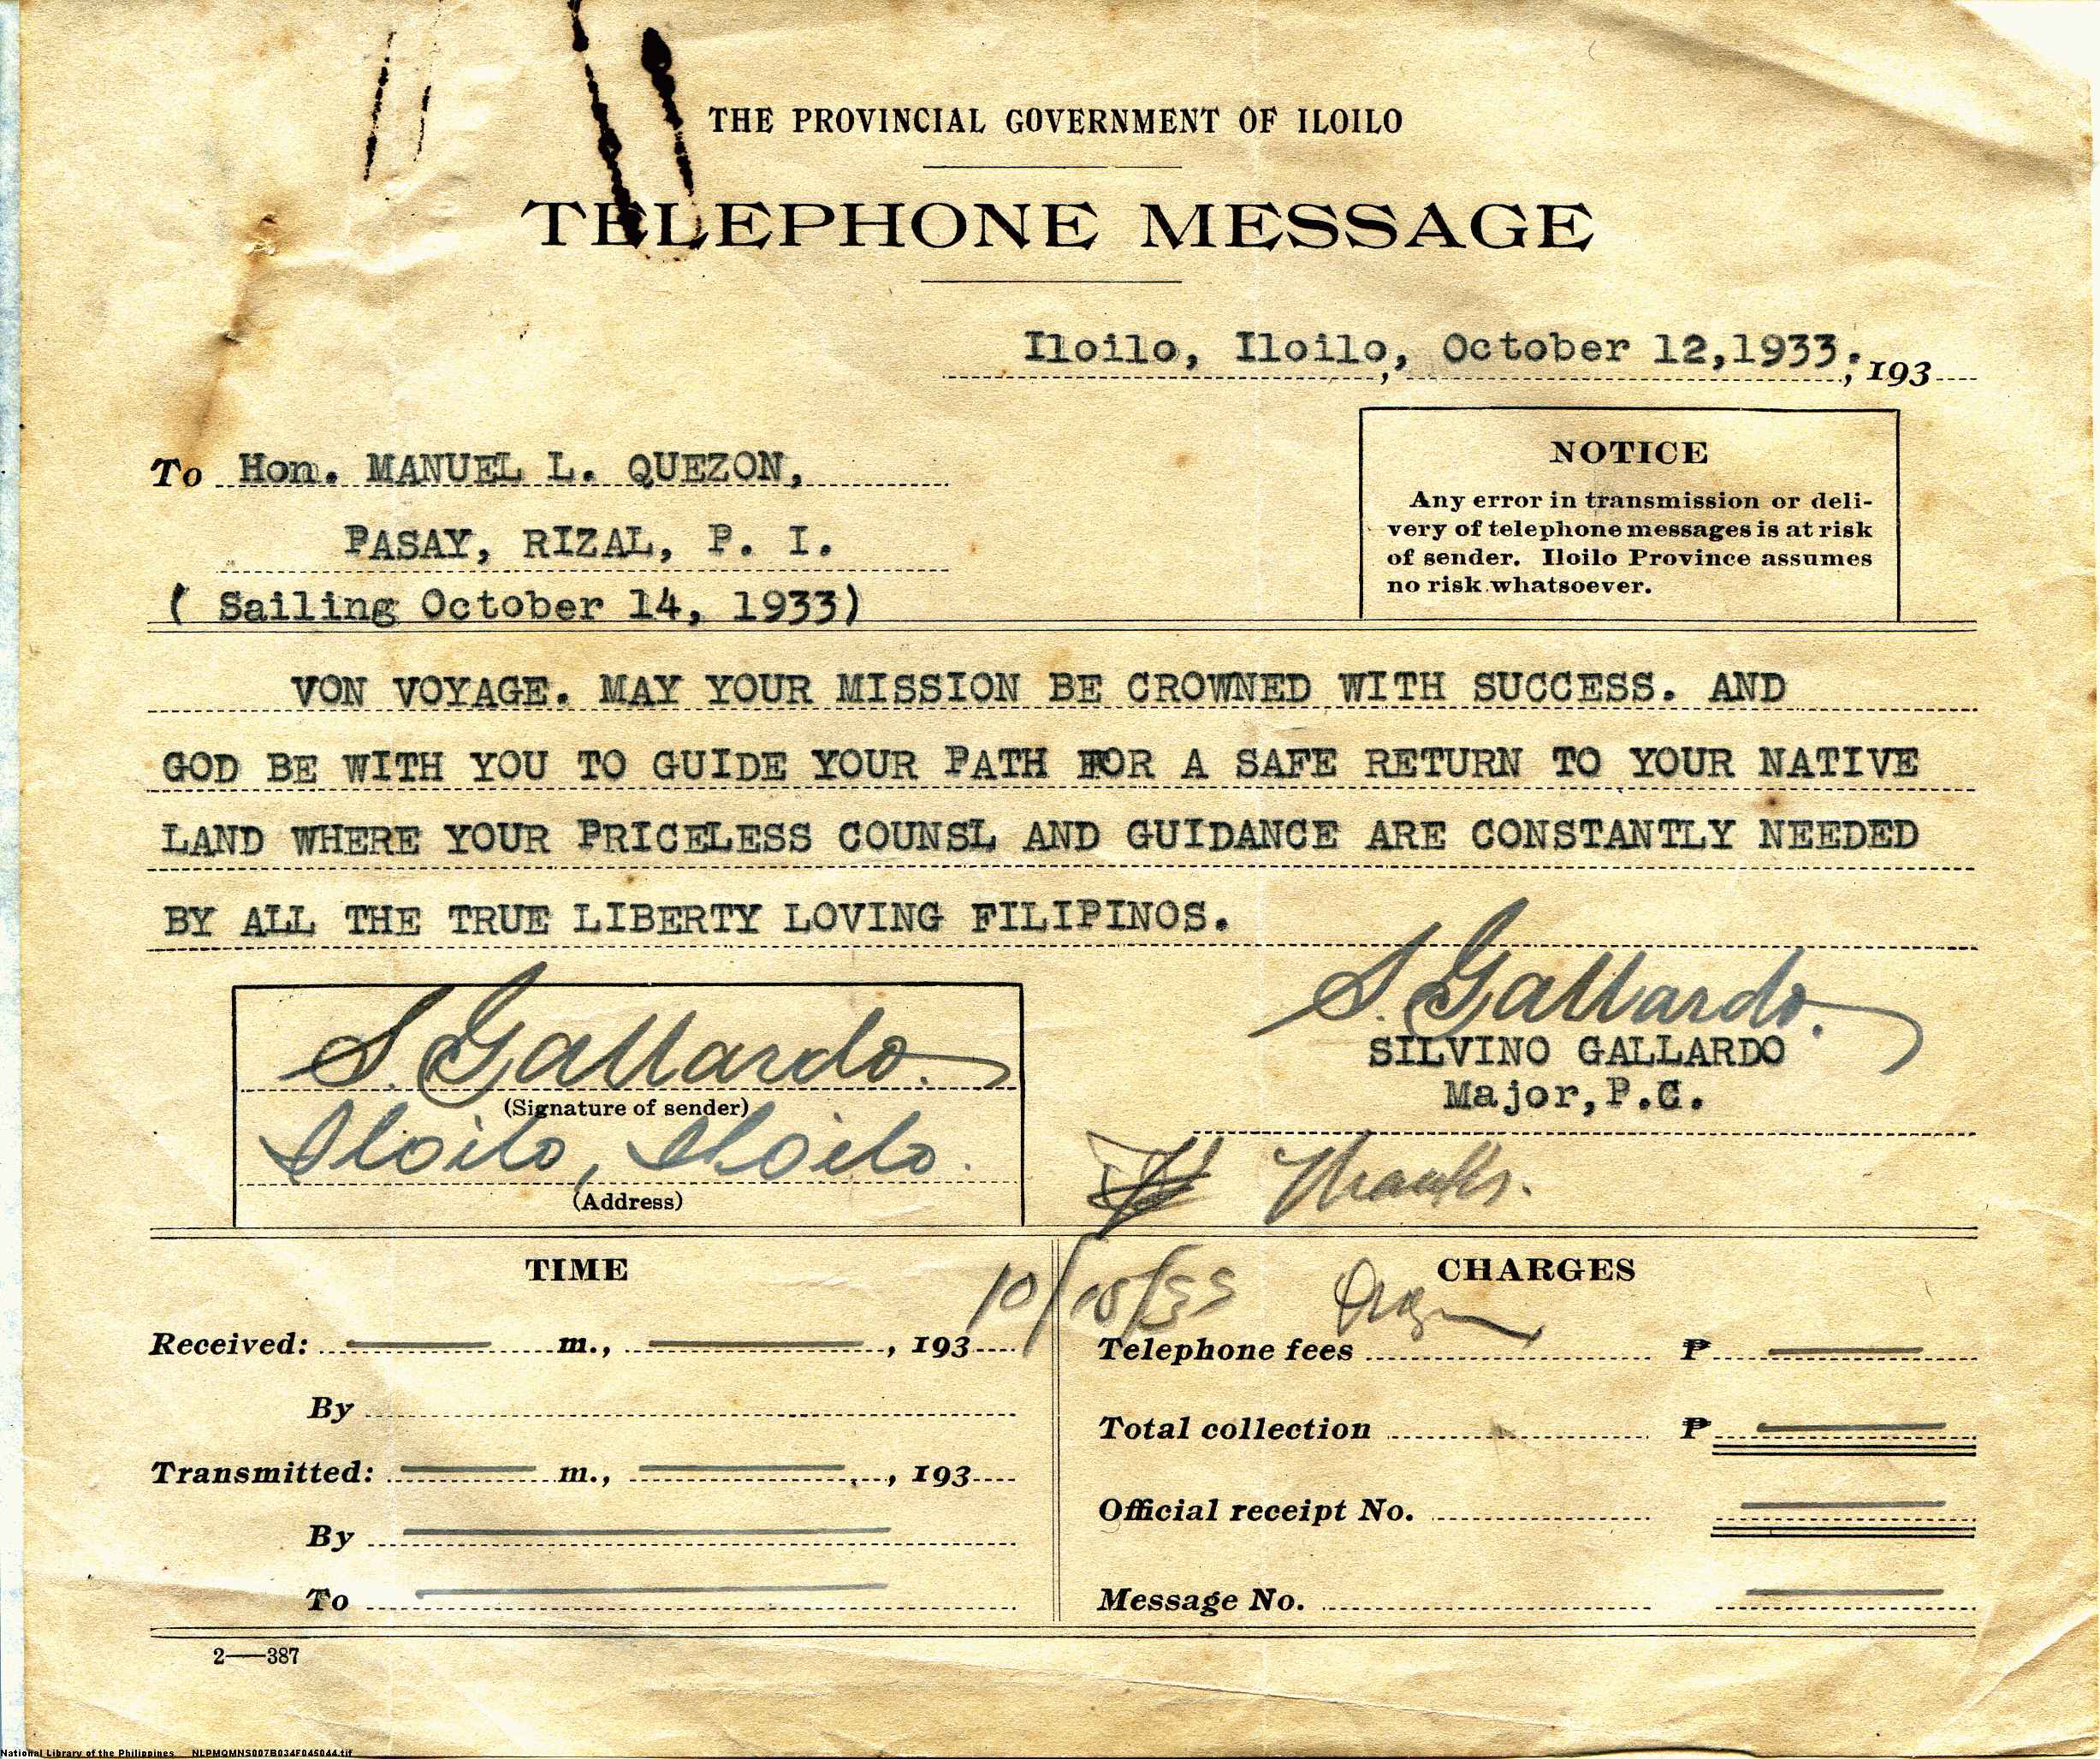 THE PROVINCIAL GOVERNMENT OF ILOILO
TELEPHONE MESSAGE
Iloilo, Iloilo, October 12,1933. , 193
To Hon. MANUEL L. QUEZON,
PASAY, RIZAL, P. I.
( Sailing October 14, 1933)
NOTICE
Any error in transmission or deli-
very of telephone messages is at risk
of sender. Iloilo Province assumes
no risk whatsoever.
VON VOYAGE. MAY YOUR MISSION BE CROWNED WITH SUCCESS. AND
GOD BE WITH YOU TO GUIDE YOUR PATH FOR A SAFE RETURN TO YOUR NATIVE
LAND WHERE YOUR PRICELESS COUNSL AND GUIDANCE ARE CONSTANTLY NEEDED
BY ALL THE TRUE LIBERTY LOVING FILIPINOS.
S. Gallardo.
SILVINO GALLARDO
Major, P.C.
S. Gallardo.
(Signature of sender)
Iloilo, Iloilo.
(Address)
Thanks.
10/15/33
TIME
Received: m., , 193
By
Transmitted: m., , 193
By
To
CHARGES
Telephone fees ₱
Total collection ₱
Official receipt No.
Message No.
2—387
National Library of the Philippines NLPMQMNS007B034F045044.tif